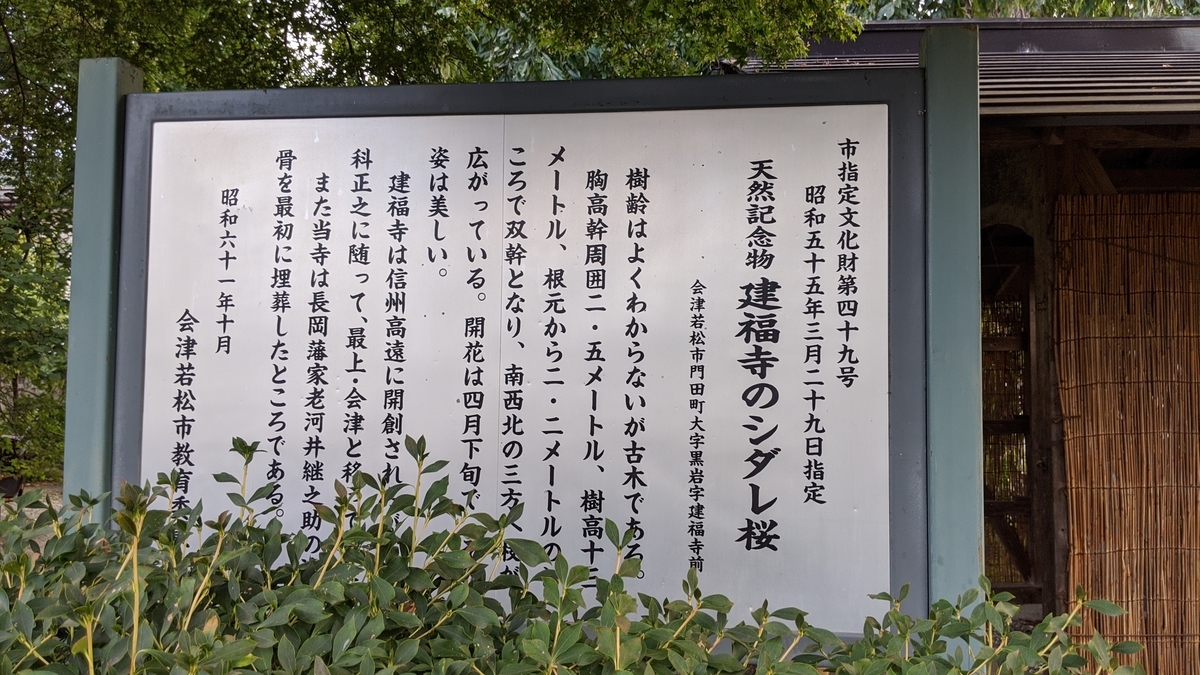 市指定文化財第四十九号
昭和五十五年三月二十九日指定
天然記念物 建福寺のシダレ桜
会津若松市門田町大字黒岩字建福寺前
樹齢はよくわからないが古木である。
胸高幹周囲二・五メートル、樹高十三
メートル、根元から二・二メートルの
ころで双幹となり、南西北の三方へ枝が
広がっている。開花は四月下旬で
姿は美しい。
建福寺は信州高遠に開創され
科正之に随って、最上・会津と移
また当寺は長岡藩家老河井継之助の
骨を最初に埋葬したところである。
昭和六十一年十月
会津若松市教育委